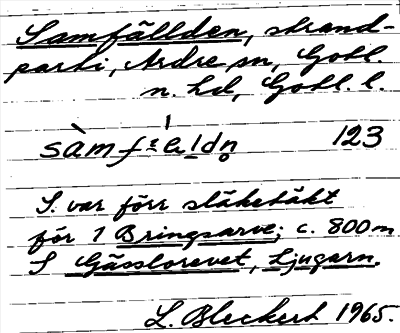 Samfällden, strand-
parti, Ardre sn, Gotl.
n. hd, Gotl. l.
sàmfældn 123
S. var förr släketäkt
för 1 Bringsarve; c. 800 m
S Gässlorevet, Ljugarn.
L. Bleckert 1965.